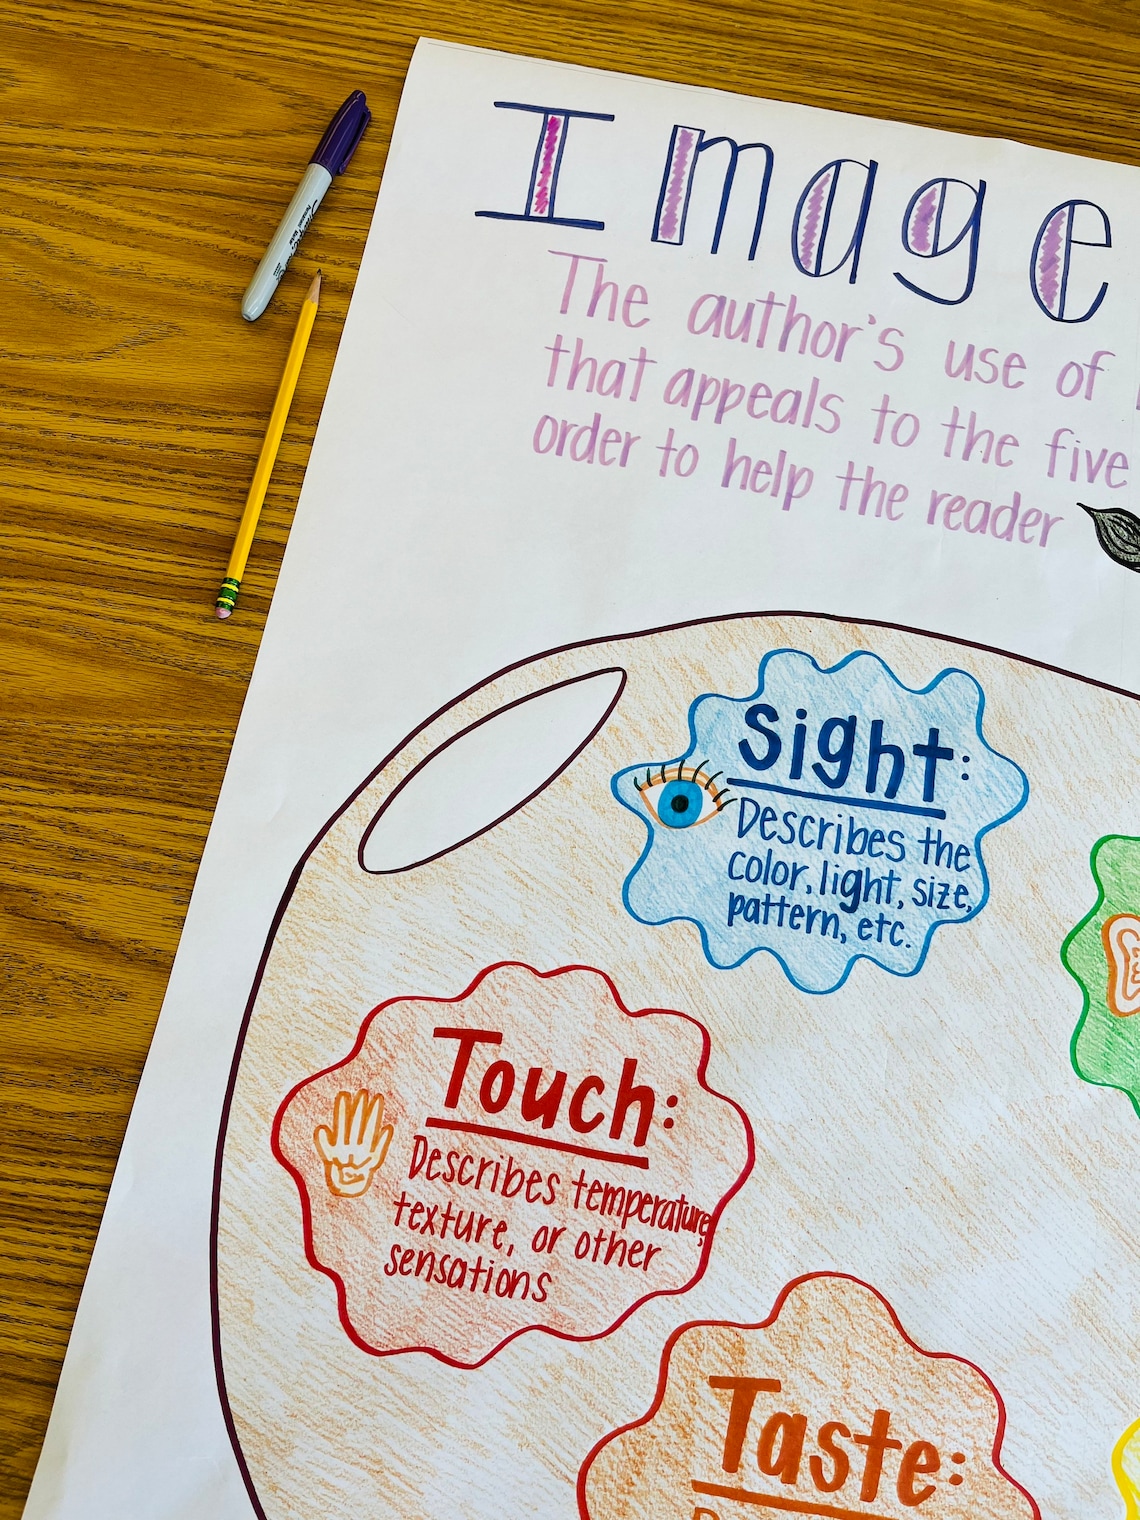 Image
The author's use of
that appeals to the five
order to help the reader
Sight:
Describes the
color, light, size,
pattern, etc.
Touch:
Describes temperature,
texture, or other
sensations
Taste:
Sharpie